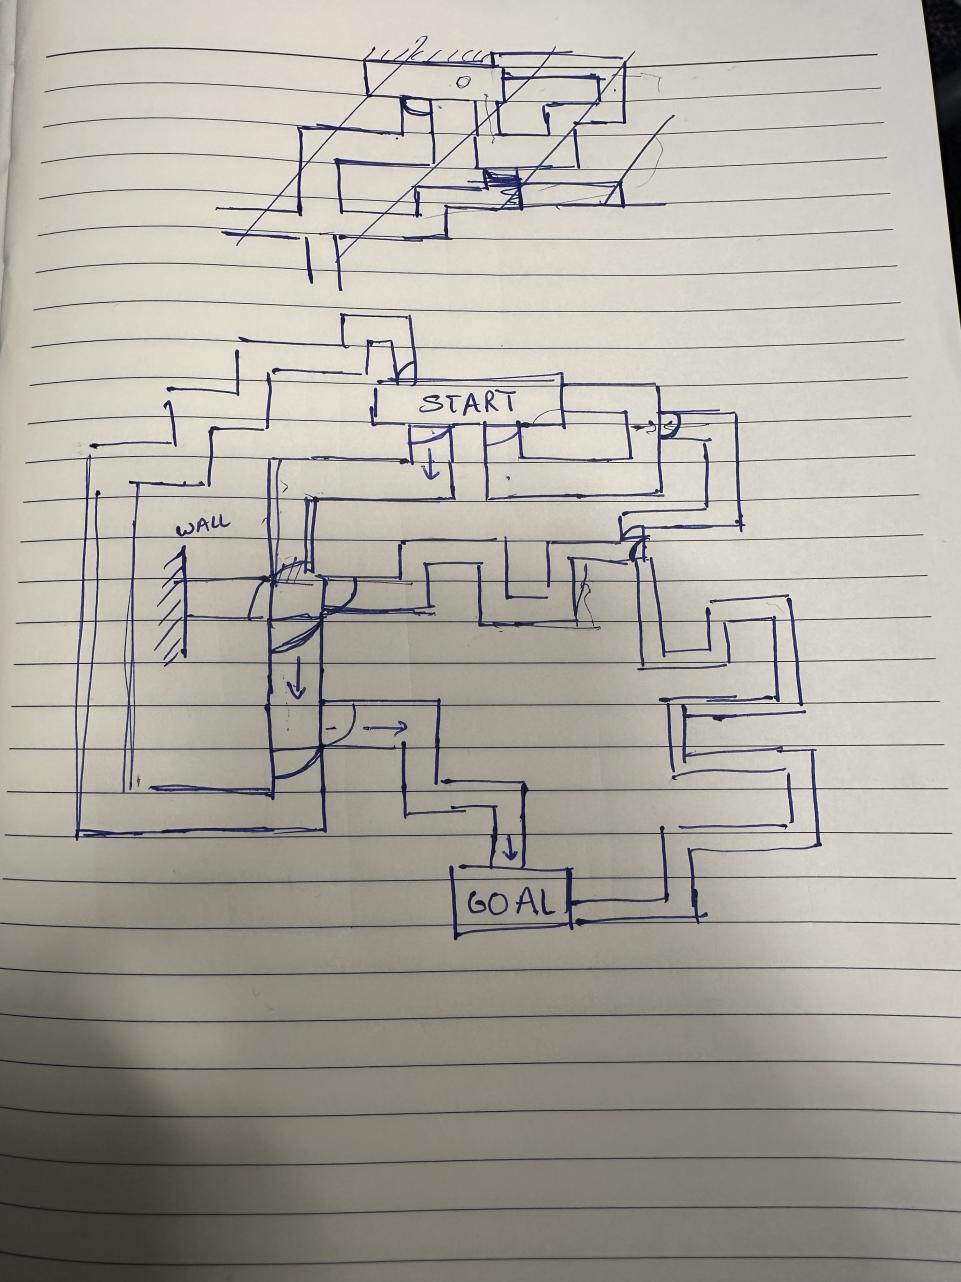 START
WALL
GOAL